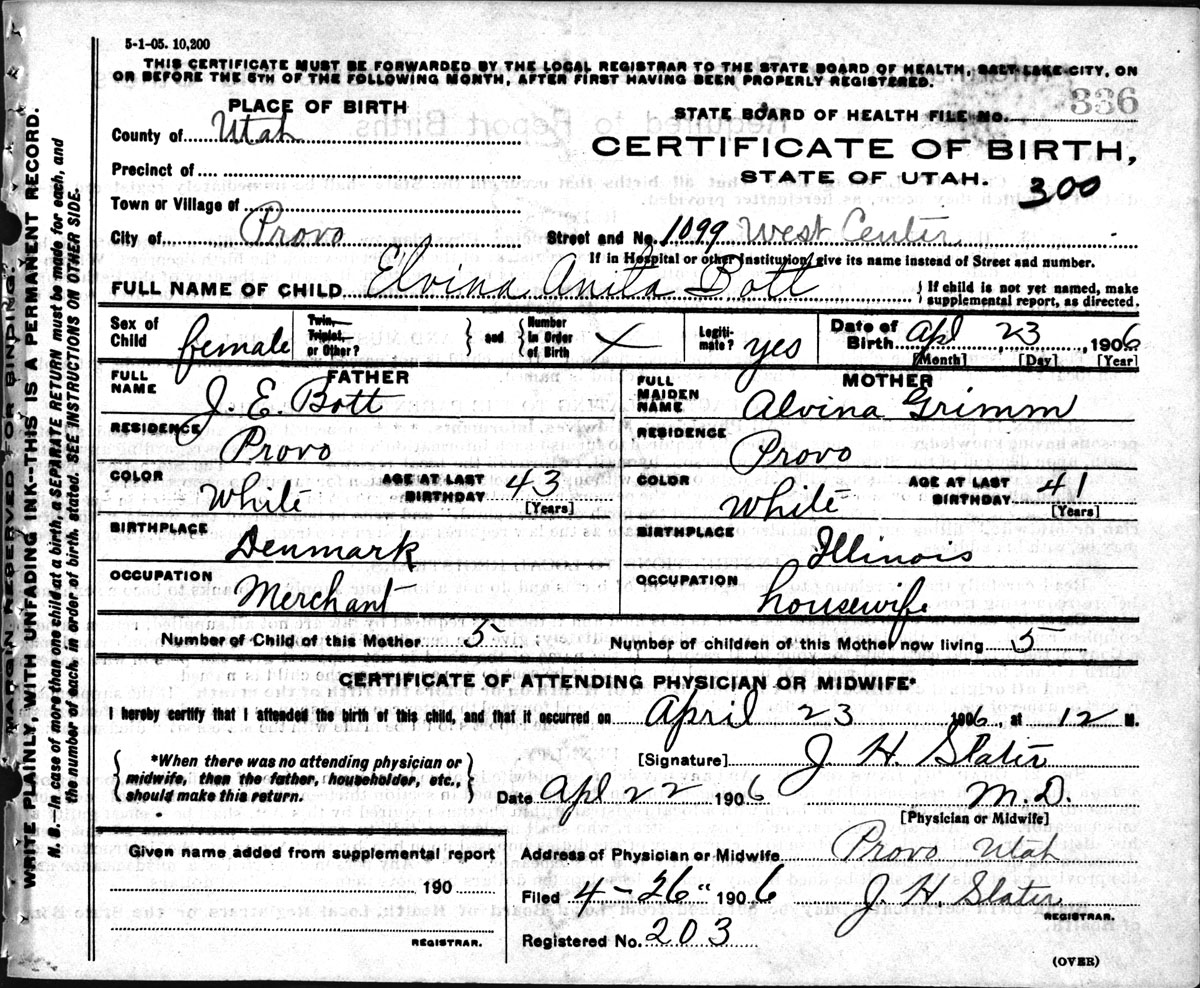 5-1-05. 10,200
THIS CERTIFICATE MUST BE FORWARDED BY THE LOCAL REGISTRAR TO THE STATE BOARD OF HEALTH, SALT LAKE CITY, ON
OR BEFORE THE 5TH OF THE FOLLOWING MONTH, AFTER FIRST HAVING BEEN PROPERLY REGISTERED.
MARGIN RESERVED FOR BINDING.
WRITE PLAINLY, WITH UNFADING INK--THIS IS A PERMANENT RECORD.
N. B. In case of more than one child at a birth, a SEPARATE RETURN must be made for each, and
the number of each, in order of birth, stated. SEE INSTRUCTIONS ON OTHER SIDE.
PLACE OF BIRTH
County of Utah
Precinct of
Town or Village of
City of Provo
336
STATE BOARD OF HEALTH FILE NO.
CERTIFICATE OF BIRTH,
STATE OF UTAH.
300
Street and No. 1099 West Center
If in Hospital or other Institution, give its name instead of Street and number.
FULL NAME OF CHILD Elvina Anita Bott
If child is not yet named, make
supplemental report, as directed.
Sex of Child female
Twin, Triplet, or Other? and Number in Order of Birth X
Legitimate? yes
Date of Birth Apl 23, 1906
[Month] [Day] [Year]
FATHER
FULL NAME J. E. Bott
RESIDENCE Provo
COLOR White AGE AT LAST BIRTHDAY 43
[Years]
BIRTHPLACE Denmark
OCCUPATION Merchant
MOTHER
FULL MAIDEN NAME Alvina Grimm
RESIDENCE Provo
COLOR White AGE AT LAST BIRTHDAY 41
[Years]
BIRTHPLACE Illinois
OCCUPATION housewife
Number of Child of this Mother 5 Number of children of this Mother now living 5
CERTIFICATE OF ATTENDING PHYSICIAN OR MIDWIFE*
I hereby certify that I attended the birth of this child, and that it occurred on April 23 1906, at 12 M.
*When there was no attending physician or
midwife, then the father, householder, etc.,
should make this return.
[Signature] J. H. Slater
Date Apl 22 1906 M.D.
[Physician or Midwife]
Given name added from supplemental report
190
REGISTRAR.
Address of Physician or Midwife Provo Utah
Filed 4-26" 1906 J. H. Slater
REGISTRAR.
Registered No. 203
(OVER)